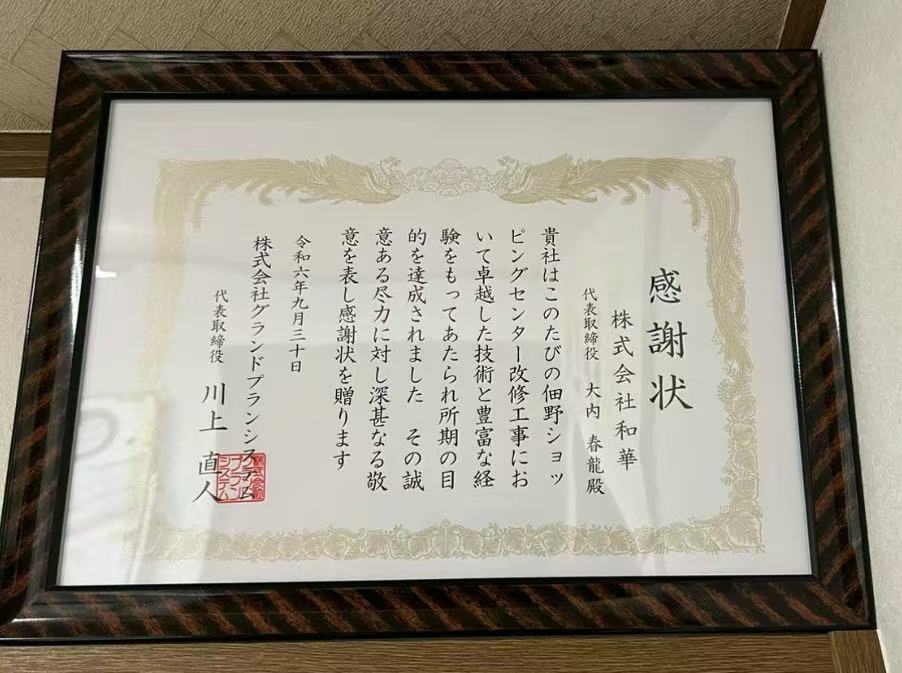 感謝状
株式会社和華
代表取締役 大内 春龍殿
貴社はこのたびの佃野ショッ
ピングセンター改修工事にお
いて卓越した技術と豊富な経
験をもってあたられ所期の目
的を達成されました その誠
意ある尽力に対し深甚なる敬
意を表し感謝状を贈ります
令和六年九月三十日
株式会社グランドプランシステム
代表取締役 川上 直人